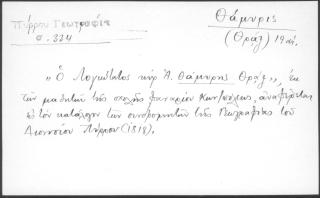 Πύρρου Γεωγραφία
σ. 334
Θάμυρις
(Θρᾷξ) 19 αἰ.
"Ὁ Λογιώτατος κύρ Ἀ. Θάμυρις Θρᾷξ", ἐκ
τῶν μαθητῶν τῆς σχολῆς Φαναρίου Κων/πόλεως, ἀναφέρεται
εἰς τὸν κατάλογον τῶν συνδρομητῶν τῆς Γεωγραφίας τοῦ
Διονυσίου Πύρρου (1818).